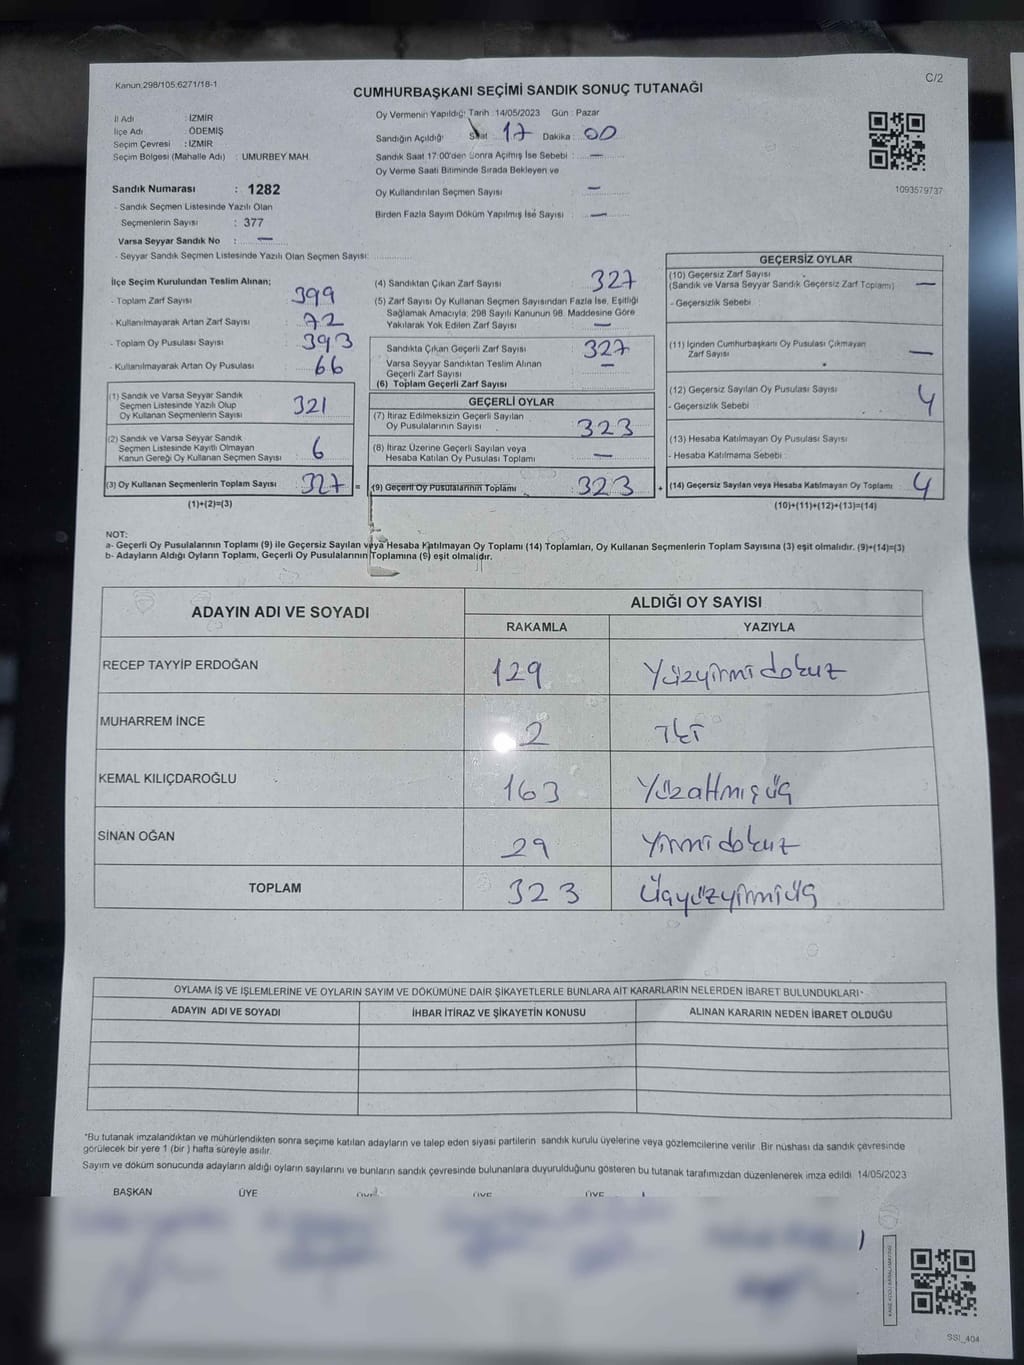 Kanun 298/105:6271/18-1
C/2
CUMHURBAŞKANI SEÇİMİ SANDIK SONUÇ TUTANAĞI
İl Adı : İZMİR
İlçe Adı : ÖDEMİŞ
Seçim Çevresi : İZMİR
Seçim Bölgesi (Mahalle Adı) : UMURBEY MAH.
Sandık Numarası : 1282
- Sandık Seçmen Listesinde Yazılı Olan
Seçmenlerin Sayısı : 377
Varsa Seyyar Sandık No : —
- Seyyar Sandık Seçmen Listesinde Yazılı Olan Seçmen Sayısı:
Oy Vermenin Yapıldığı Tarih : 14/05/2023 Gün : Pazar
Sandığın Açıldığı Saat 17 Dakika : 00
Sandık Saat 17:00'den Sonra Açılmış İse Sebebi : —
Oy Verme Saati Bitiminde Sırada Bekleyen ve
Oy Kullandırılan Seçmen Sayısı —
Birden Fazla Sayım Döküm Yapılmış İse Sayısı : —
1093579737
İlçe Seçim Kurulundan Teslim Alınan;
- Toplam Zarf Sayısı : 399
- Kullanılmayarak Artan Zarf Sayısı : 72
- Toplam Oy Pusulası Sayısı : 393
- Kullanılmayarak Artan Oy Pusulası : 66
(1) Sandık ve Varsa Seyyar Sandık
Seçmen Listesinde Yazılı Olup
Oy Kullanan Seçmenlerin Sayısı : 321
(2) Sandık ve Varsa Seyyar Sandık
Seçmen Listesinde Kayıtlı Olmayan
Kanun Gereği Oy Kullanan Seçmen Sayısı : 6
(3) Oy Kullanan Seçmenlerin Toplam Sayısı : 327 =
(1)+(2)=(3)
(4) Sandıktan Çıkan Zarf Sayısı : 327
(5) Zarf Sayısı Oy Kullanan Seçmen Sayısından Fazla İse, Eşitliği
Sağlamak Amacıyla; 298 Sayılı Kanunun 98. Maddesine Göre
Yakılarak Yok Edilen Zarf Sayısı : —
Sandıkta Çıkan Geçerli Zarf Sayısı : 327
Varsa Seyyar Sandıktan Teslim Alınan
Geçerli Zarf Sayısı : —
(6) Toplam Geçerli Zarf Sayısı
GEÇERLİ OYLAR
(7) İtiraz Edilmeksizin Geçerli Sayılan
Oy Pusulalarının Sayısı : 323
(8) İtiraz Üzerine Geçerli Sayılan veya
Hesaba Katılan Oy Pusulası Toplamı : —
(9) Geçerli Oy Pusulalarının Toplamı : 323 +
GEÇERSİZ OYLAR
(10) Geçersiz Zarf Sayısı
(Sandık ve Varsa Seyyar Sandık Geçersiz Zarf Toplamı) —
- Geçersizlik Sebebi :
(11) İçinden Cumhurbaşkanı Oy Pusulası Çıkmayan
Zarf Sayısı : —
(12) Geçersiz Sayılan Oy Pusulası Sayısı : 4
- Geçersizlik Sebebi :
(13) Hesaba Katılmayan Oy Pusulası Sayısı
- Hesaba Katılmama Sebebi :
(14) Geçersiz Sayılan veya Hesaba Katılmayan Oy Toplamı : 4
(10)+(11)+(12)+(13)=(14)
NOT:
a- Geçerli Oy Pusulalarının Toplamı (9) ile Geçersiz Sayılan veya Hesaba Katılmayan Oy Toplamı (14) Toplamları, Oy Kullanan Seçmenlerin Toplam Sayısına (3) eşit olmalıdır. (9)+(14)=(3)
b- Adayların Aldığı Oyların Toplamı, Geçerli Oy Pusulalarının Toplamına (9) eşit olmalıdır.
ADAYIN ADI VE SOYADI ALDIĞI OY SAYISI
RAKAMLA YAZIYLA
RECEP TAYYİP ERDOĞAN 129 Yüzyirmidokuz
MUHARREM İNCE 2 İki
KEMAL KILIÇDAROĞLU 163 Yüzaltmışüç
SİNAN OĞAN 29 Yirmidokuz
TOPLAM 323 Üçyüzyirmiüç
OYLAMA İŞ VE İŞLEMLERİNE VE OYLARIN SAYIM VE DÖKÜMÜNE DAİR ŞİKAYETLERLE BUNLARA AİT KARARLARIN NELERDEN İBARET BULUNDUKLARI*
ADAYIN ADI VE SOYADI İHBAR İTİRAZ VE ŞİKAYETİN KONUSU ALINAN KARARIN NEDEN İBARET OLDUĞU
*Bu tutanak imzalandıktan ve mühürlendikten sonra seçime katılan adayların ve talep eden siyasi partilerin sandık kurulu üyelerine veya gözlemcilerine verilir. Bir nüshası da sandık çevresinde
görülecek bir yere 1 (bir) hafta süreyle asılır.
Sayım ve döküm sonucunda adayların aldığı oyların sayılarını ve bunların sandık çevresinde bulunanlara duyurulduğunu gösteren bu tutanak tarafımızdan düzenlenerek imza edildi. 14/05/2023
BAŞKAN ÜYE ÜYE ÜYE ÜYE
SSI_404